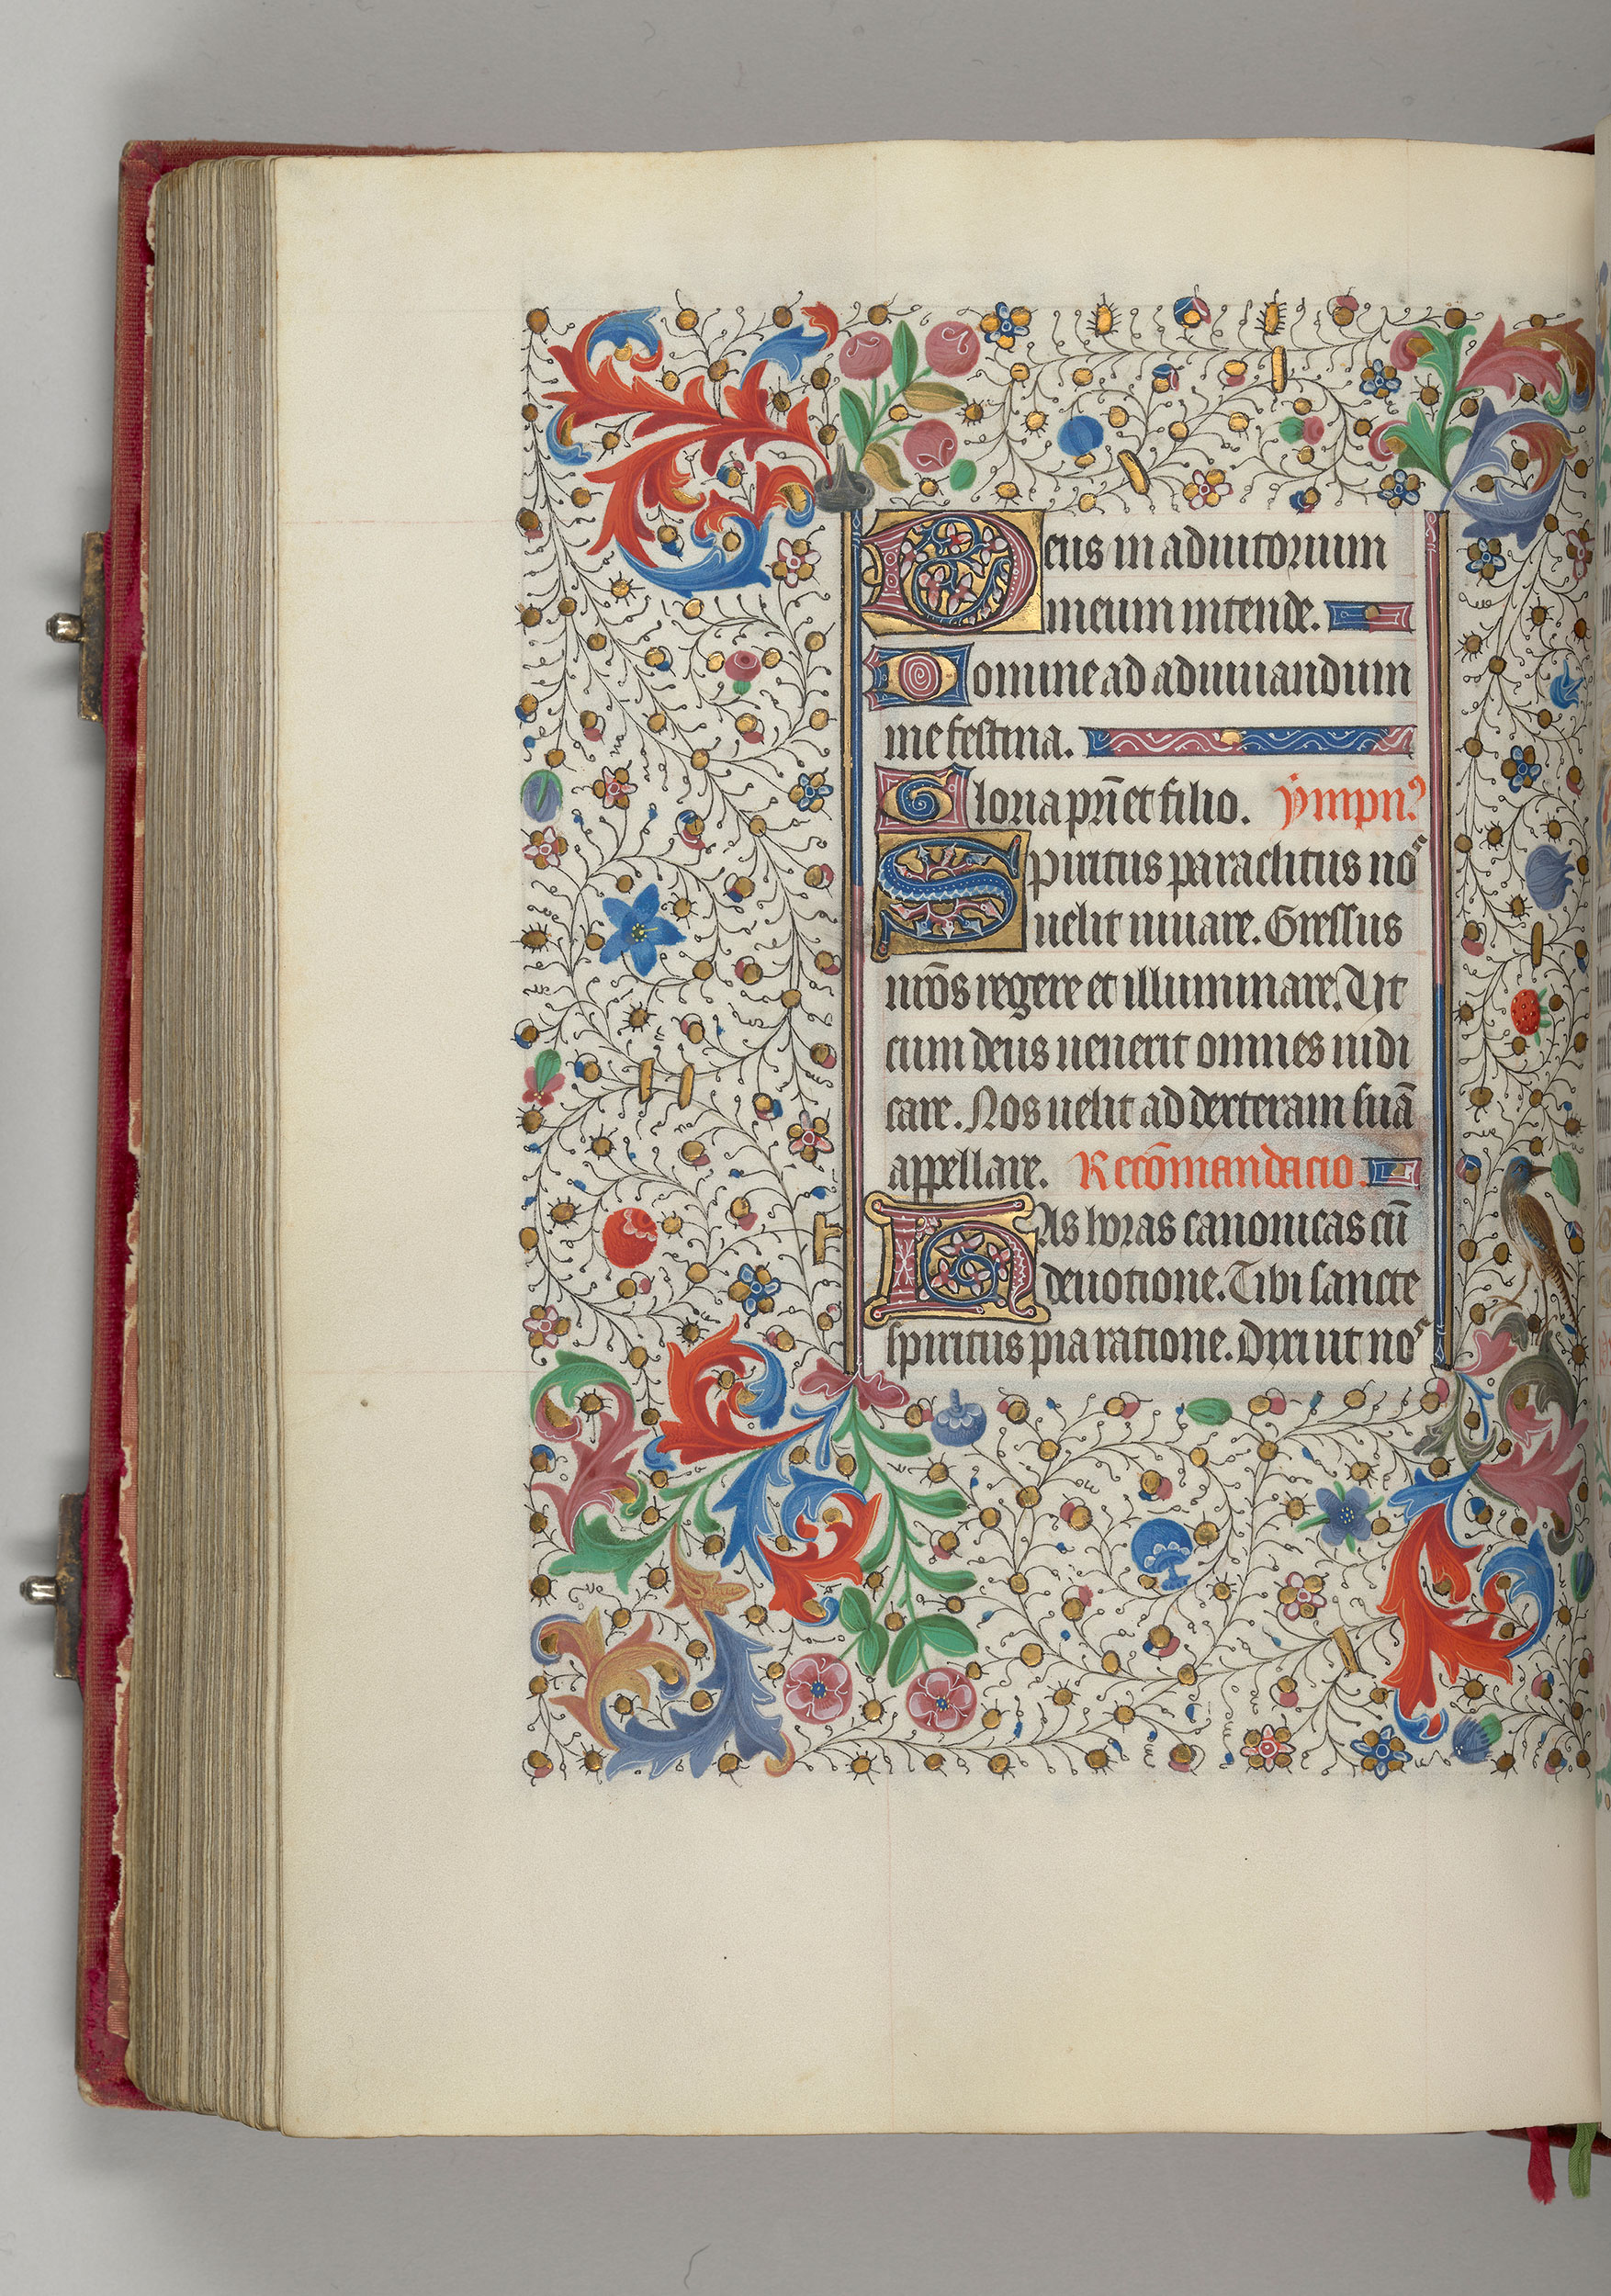 Deus in adiutorium
meum intende.
Domine ad adiuuandum
me festina.
Gloria pr̄i et filio. ẏmpnꝰ
Spiritus paraclitus no
uelit iuuare. Gressus
nr̄os regere et illuminare. Ut
cum deus uenerit omnes iudi
care. Nos uelit ad dexteram suā
appellare. Recōmandacio.
Has horas canonicas cū
deuotione. Tibi sancte
spiritus pia ratione. Dixi ut no